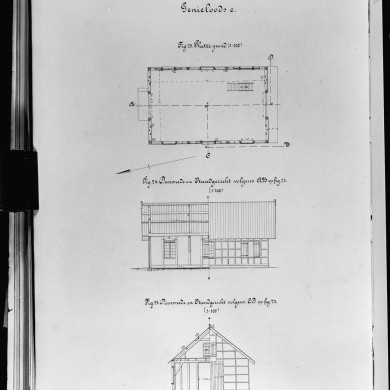 Genieloods c.
Fig 23. Plattegrond (1:100)
D
A
B
C
Fig 24. Doorsnede en Standgezicht volgens AB op fig 23.
(1:100)
Fig 25. Doorsnede en Standgezicht volgens CD op fig 23.
(1:100)